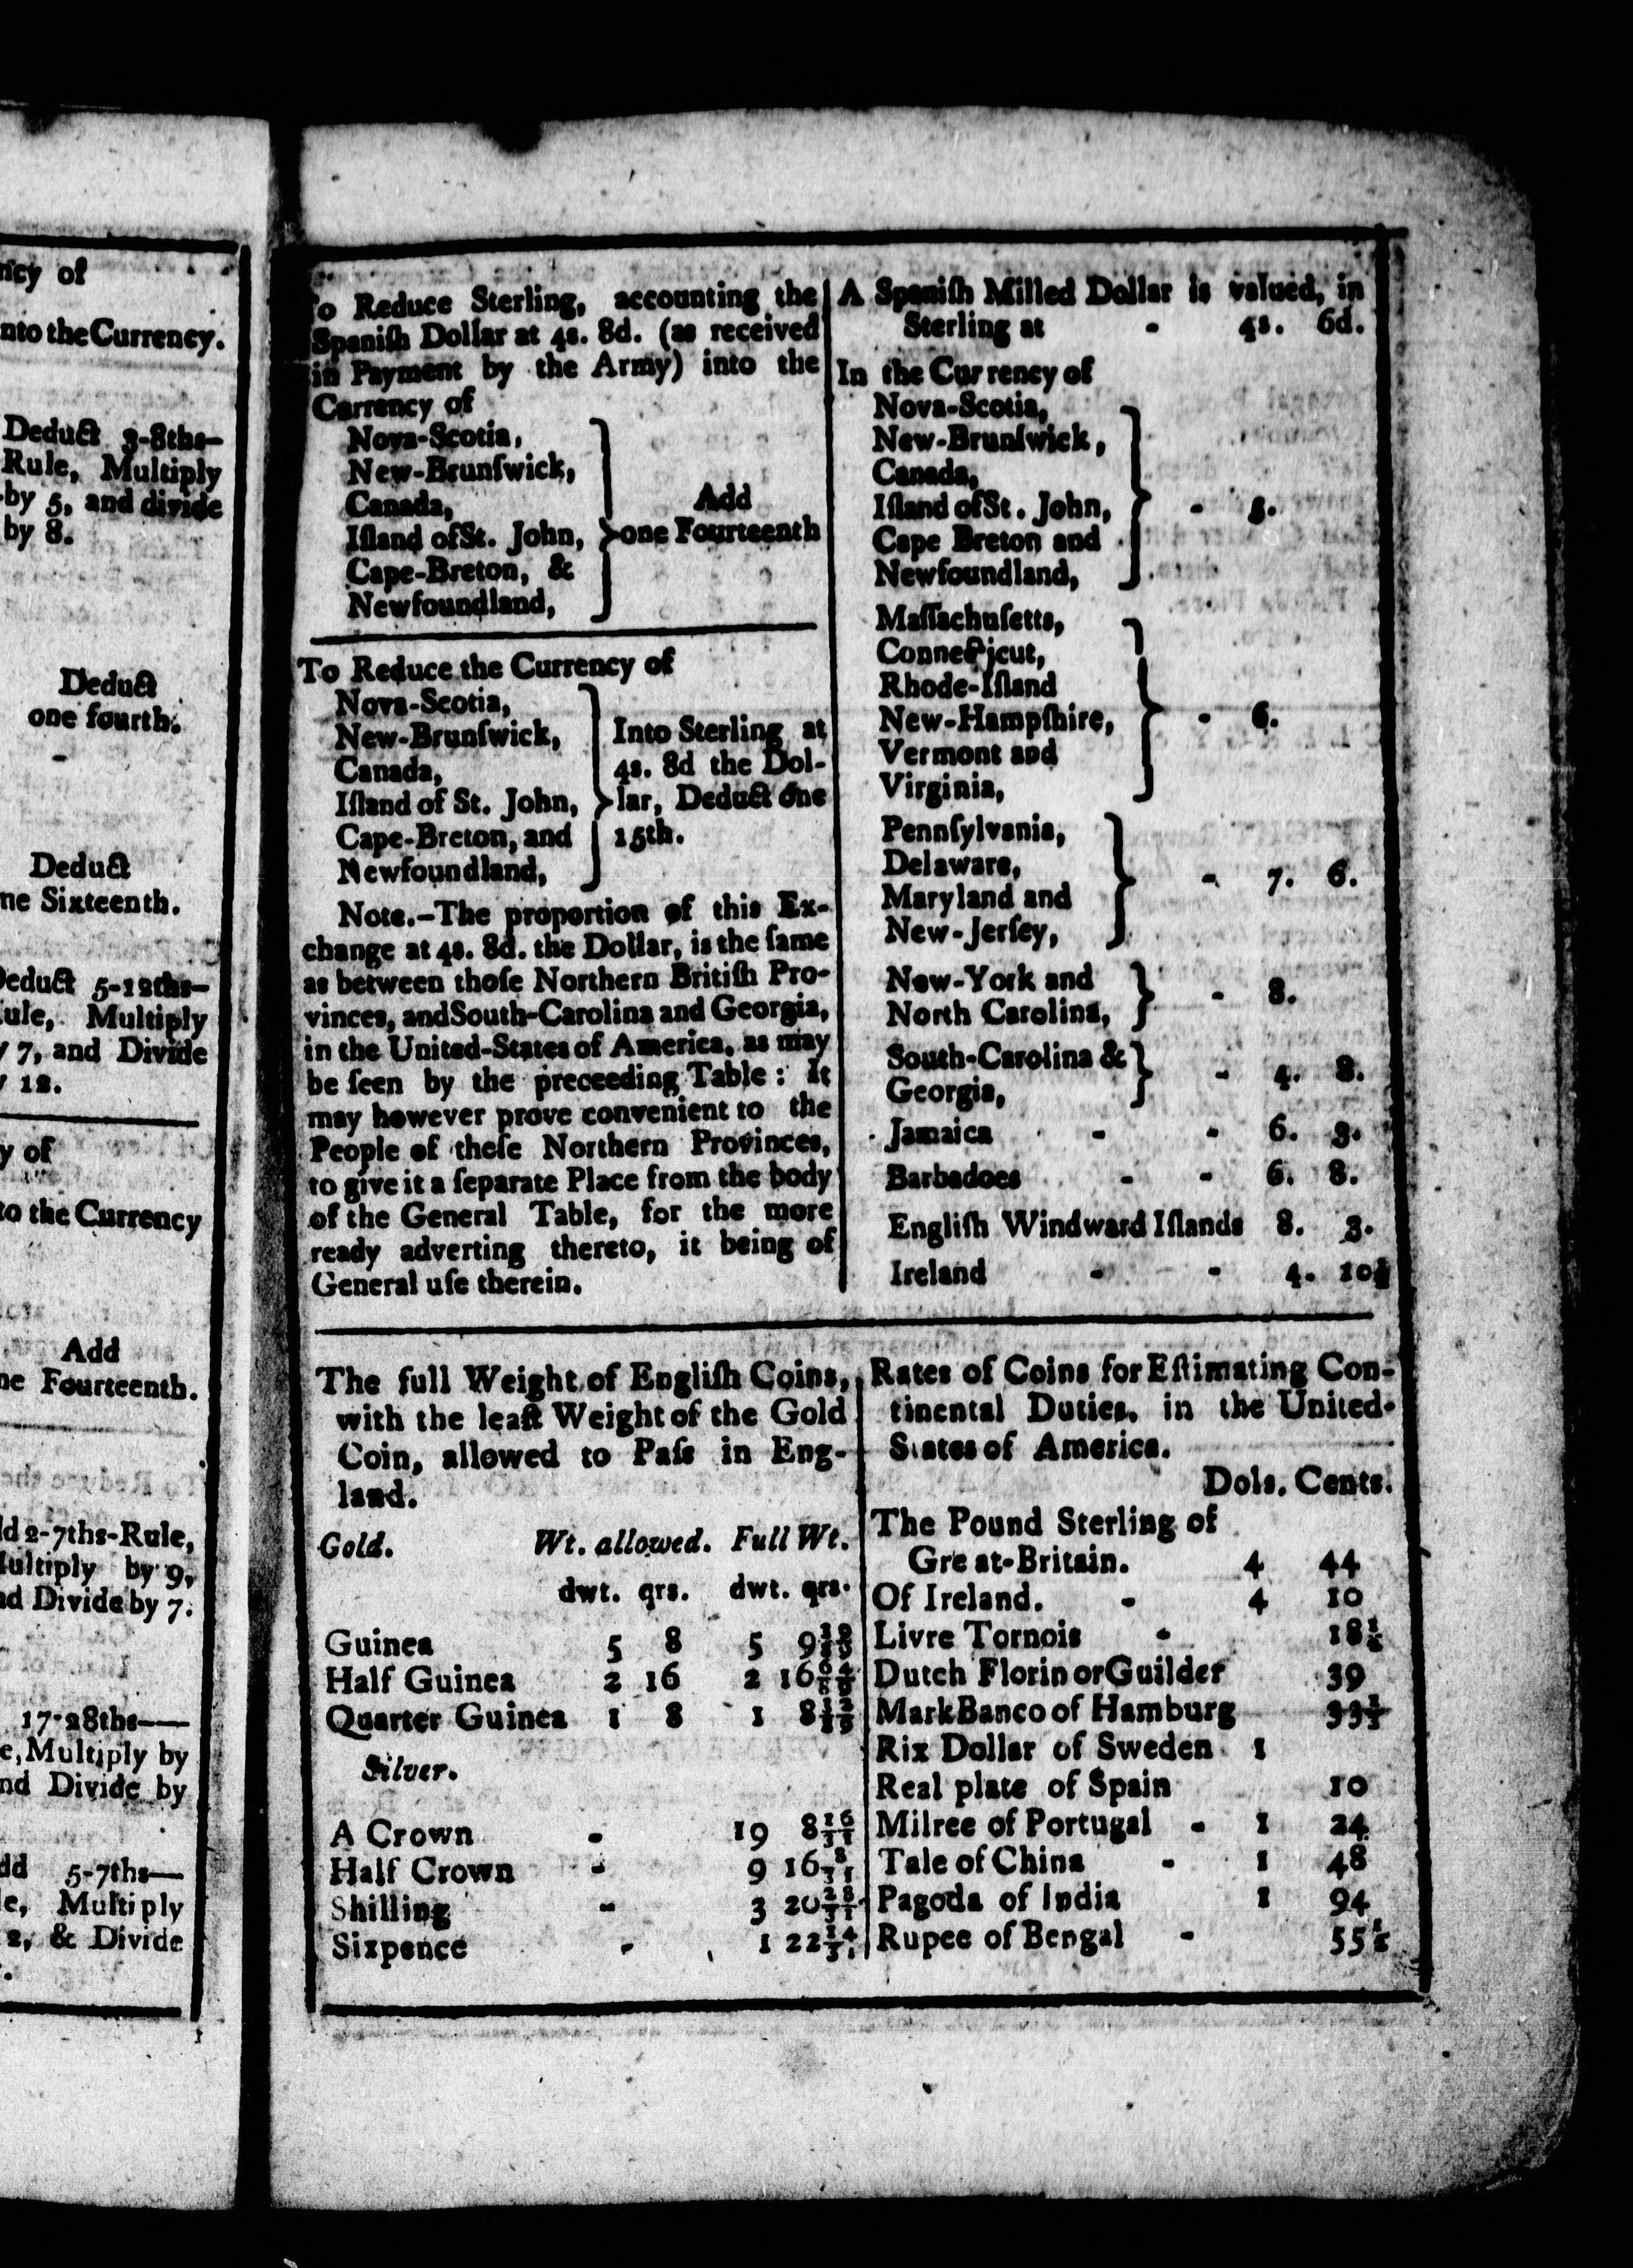 ncy of
nto the Currency.
Deduct 3-8ths—
Rule, Multiply
by 5, and divide
by 8.
Deduct
one fourth.
Deduct
ne Sixteenth.
Deduct 5-12ths—
ule, Multiply
7, and Divide
12.
y of
to the Currency
Add
ne Fourteenth.
d 2-7ths-Rule,
Multiply by 9,
nd Divide by 7.
17-28ths——
e, Multiply by
nd Divide by
dd 5-7ths—
e, Multiply
2, & Divide
To Reduce Sterling, accounting the
Spaniſh Dollar at 4s. 8d. (as received
in Payment by the Army) into the
Currency of
Nova-Scotia,
New-Brunſwick,
Canada,
Iſland of St. John,
Cape-Breton, &
Newfoundland,
Add
one Fourteenth
To Reduce the Currency of
Nova-Scotia,
New-Brunſwick,
Canada,
Iſland of St. John,
Cape-Breton, and
Newfoundland,
Into Sterling at
4s. 8d the Dol-
lar, Deduct one
15th.
Note.—The proportion of this Ex-
change at 4s. 8d. the Dollar, is the ſame
as between thoſe Northern Britiſh Pro-
vinces, and South-Carolina and Georgia,
in the United-States of America, as may
be ſeen by the preceeding Table: It
may however prove convenient to the
People of theſe Northern Provinces,
to give it a ſeparate Place from the body
of the General Table, for the more
ready adverting thereto, it being of
General uſe therein.
A Spaniſh Milled Dollar is valued, in
Sterling at - 4s. 6d.
In the Currency of
Nova-Scotia,
New-Brunſwick,
Canada,
Iſland of St. John,
Cape Breton and
Newfoundland,
- 5.
Maſſachuſetts,
Connecticut,
Rhode-Iſland
New-Hampſhire,
Vermont and
Virginia,
- 6.
Pennſylvania,
Delaware,
Maryland and
New-Jerſey,
- 7. 6.
New-York and
North Carolina,
- 8.
South-Carolina &
Georgia,
- 4. 8.
Jamaica - - 6. 3.
Barbadoes - - 6. 8.
Engliſh Windward Iſlands 8. 3.
Ireland - - 4. 10½
The full Weight of Engliſh Coins,
with the leaſt Weight of the Gold
Coin, allowed to Paſs in Eng-
land.
Gold. Wt. allowed. Full Wt.
dwt. qrs. dwt. qrs.
Guinea 5 8 5 9
Half Guinea 2 16 2 16
Quarter Guinea 1 8 1 8
Silver.
A Crown - 19 8 16/31
Half Crown - 9 16 8/31
Shilling - 3 20 28/31
Sixpence - 1 22 14/31
Rates of Coins for Eſtimating Con-
tinental Duties, in the United-
States of America.
Dols. Cents.
The Pound Sterling of
Great-Britain. 4 44
Of Ireland. - 4 10
Livre Tornois - 18½
Dutch Florin or Guilder 39
Mark Banco of Hamburg 33⅓
Rix Dollar of Sweden 1
Real plate of Spain 10
Milree of Portugal - 1 24
Tale of China - 1 48
Pagoda of India 1 94
Rupee of Bengal - 55½